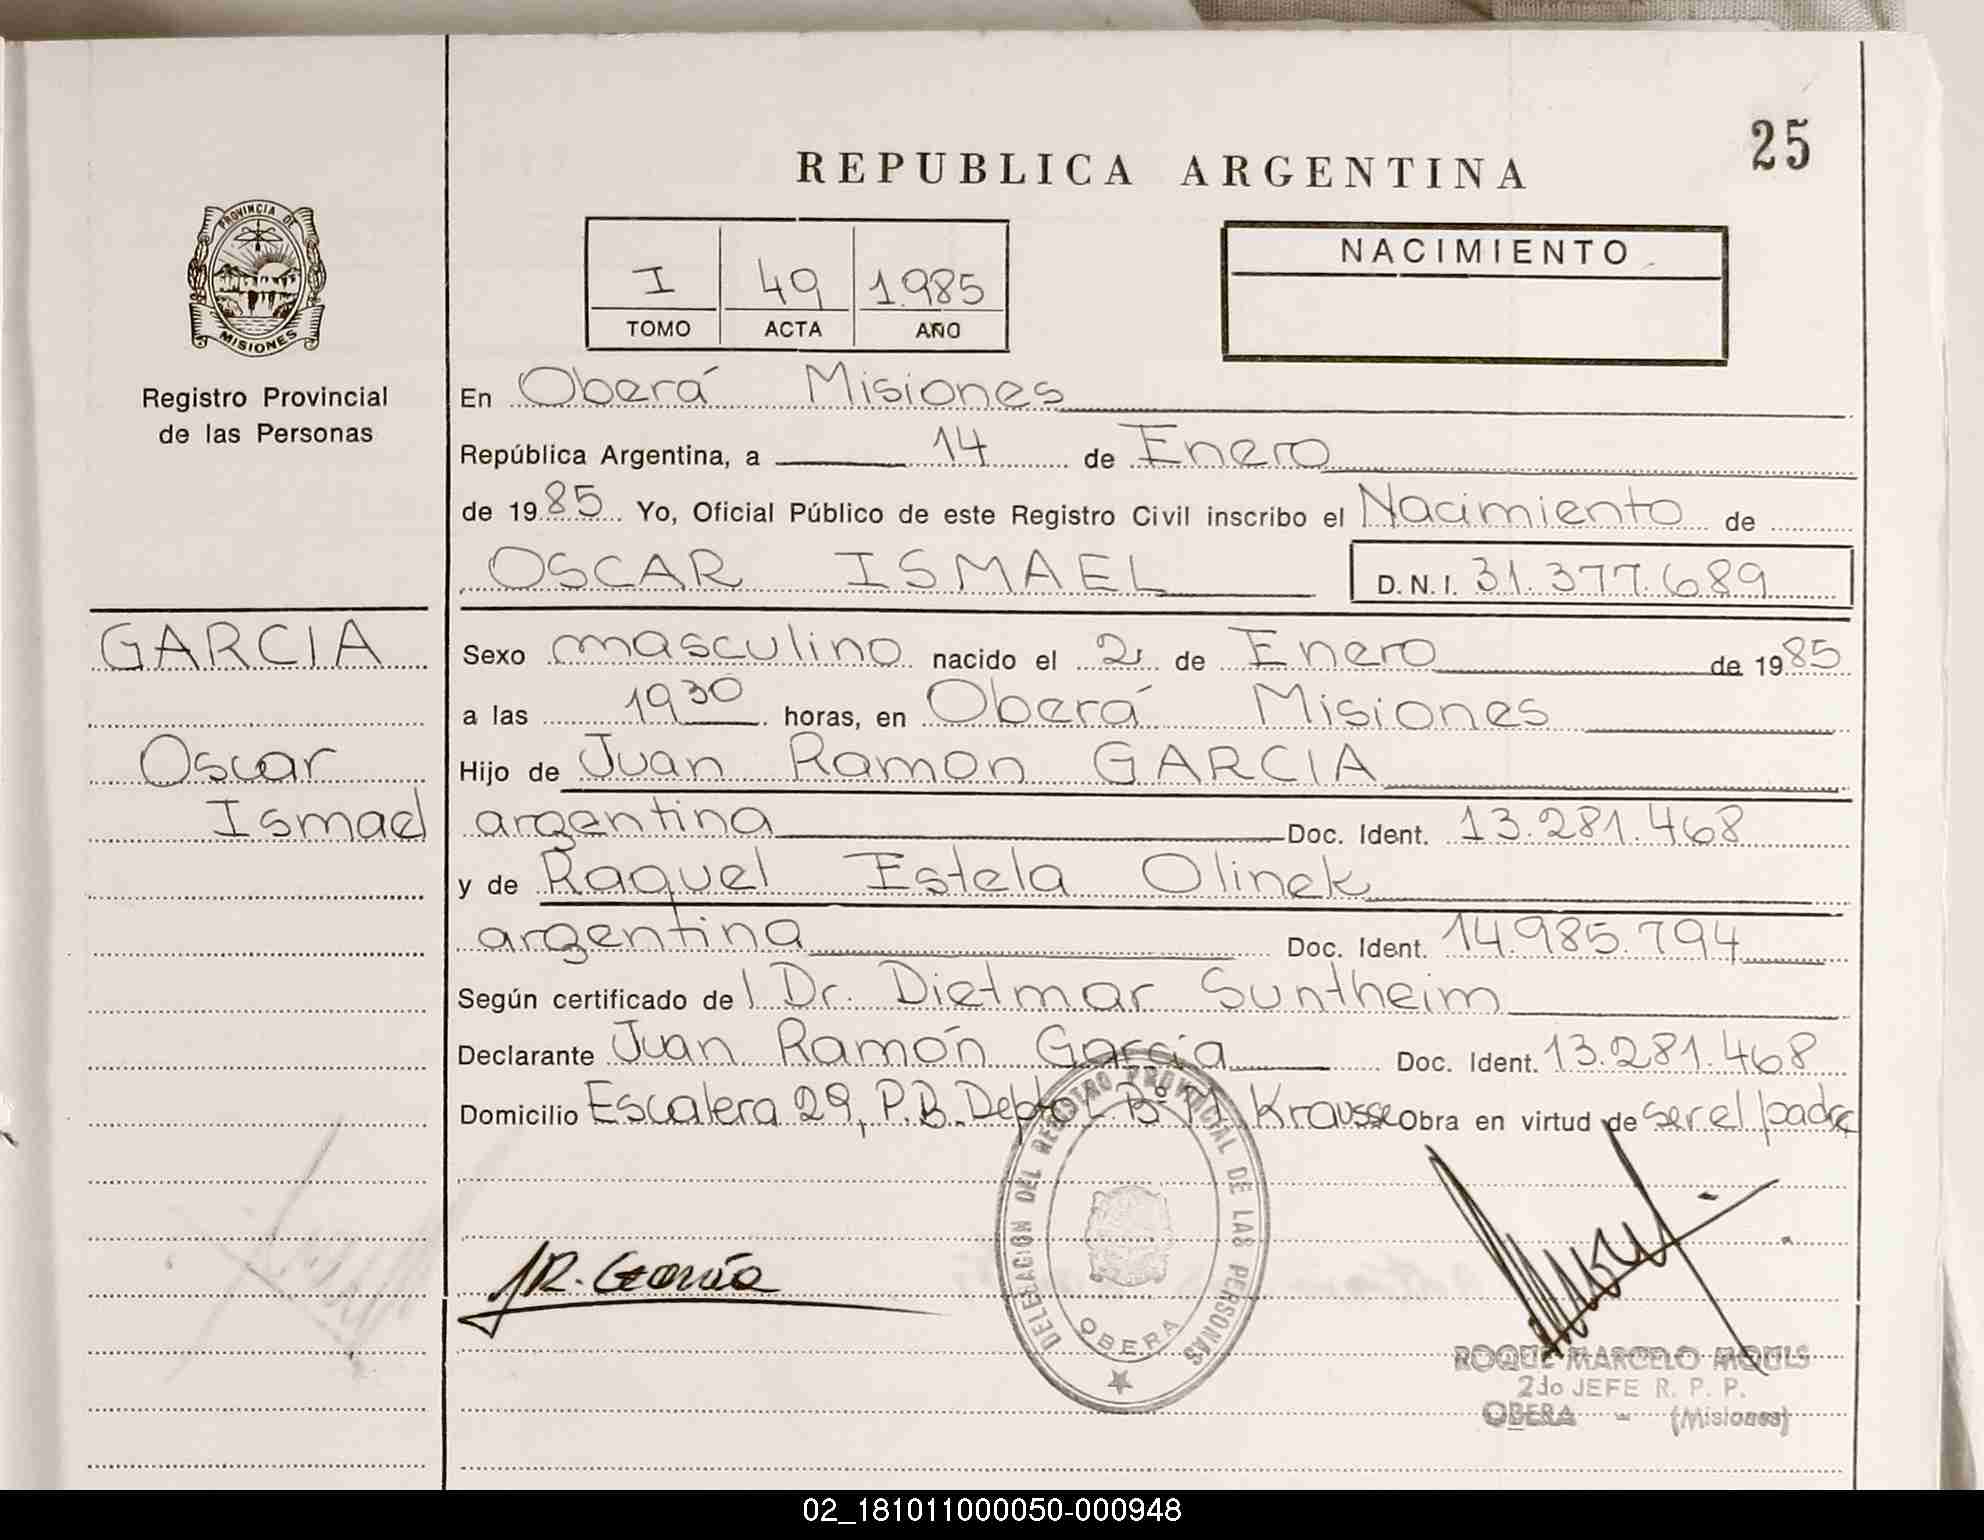 25
REPUBLICA ARGENTINA
PROVINCIA DE
MISIONES
Registro Provincial
de las Personas
I 49 1.985
TOMO ACTA AÑO
NACIMIENTO
En Oberá Misiones
República Argentina, a 14 de Enero
de 1985 Yo, Oficial Público de este Registro Civil inscribo el Nacimiento de
OSCAR ISMAEL D.N.I. 31.377.689
GARCIA
Oscar
Ismael
Sexo masculino nacido el 2 de Enero de 1985
a las 19 30 horas, en Oberá Misiones
Hijo de Juan Ramon GARCIA
argentina Doc. Ident. 13.281.468
y de Raquel Estela Olinek
argentina Doc. Ident. 14.985.794
Según certificado del Dr. Dietmar Suntheim
Declarante Juan Ramón García Doc. Ident. 13.281.468
Domicilio Escalera 29, P.B. Depto L. Bº M. Krausse Obra en virtud de ser el padre
JR. García
DELEGACION DEL REGISTRO PROVINCIAL DE LAS PERSONAS
OBERA
ROQUE MARCELO
2do JEFE R. P. P.
OBERA - (Misiones)
02_181011000050-000948